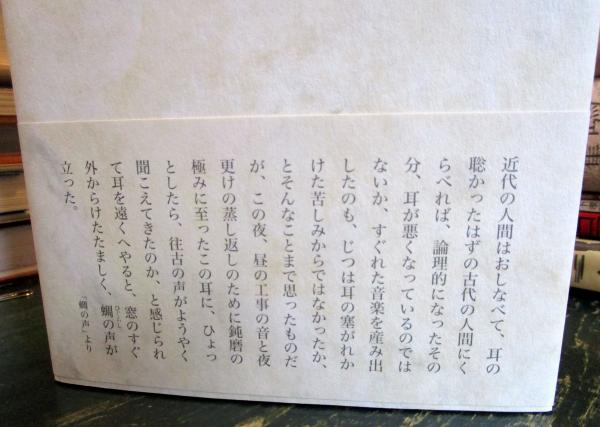 近代の人間はおしなべて、耳の
聡かったはずの古代の人間にく
らべれば、論理的になったその
分、耳が悪くなっているのでは
ないか、すぐれた音楽を産み出
したのも、じつは耳の塞がれか
けた苦しみからではなかったか、
とそんなことまで思ったものだ
が、この夜、昼の工事の音と夜
更けの蒸し返しのために鈍磨の
極みに至ったこの耳に、ひょっ
としたら、往古の声がようやく
聞こえてきたのか、と感じられ
て耳を遠くへやると、窓のすぐ
外からけたたましく、蜩の声が
ひぐらし
立った。
「蜩の声」より